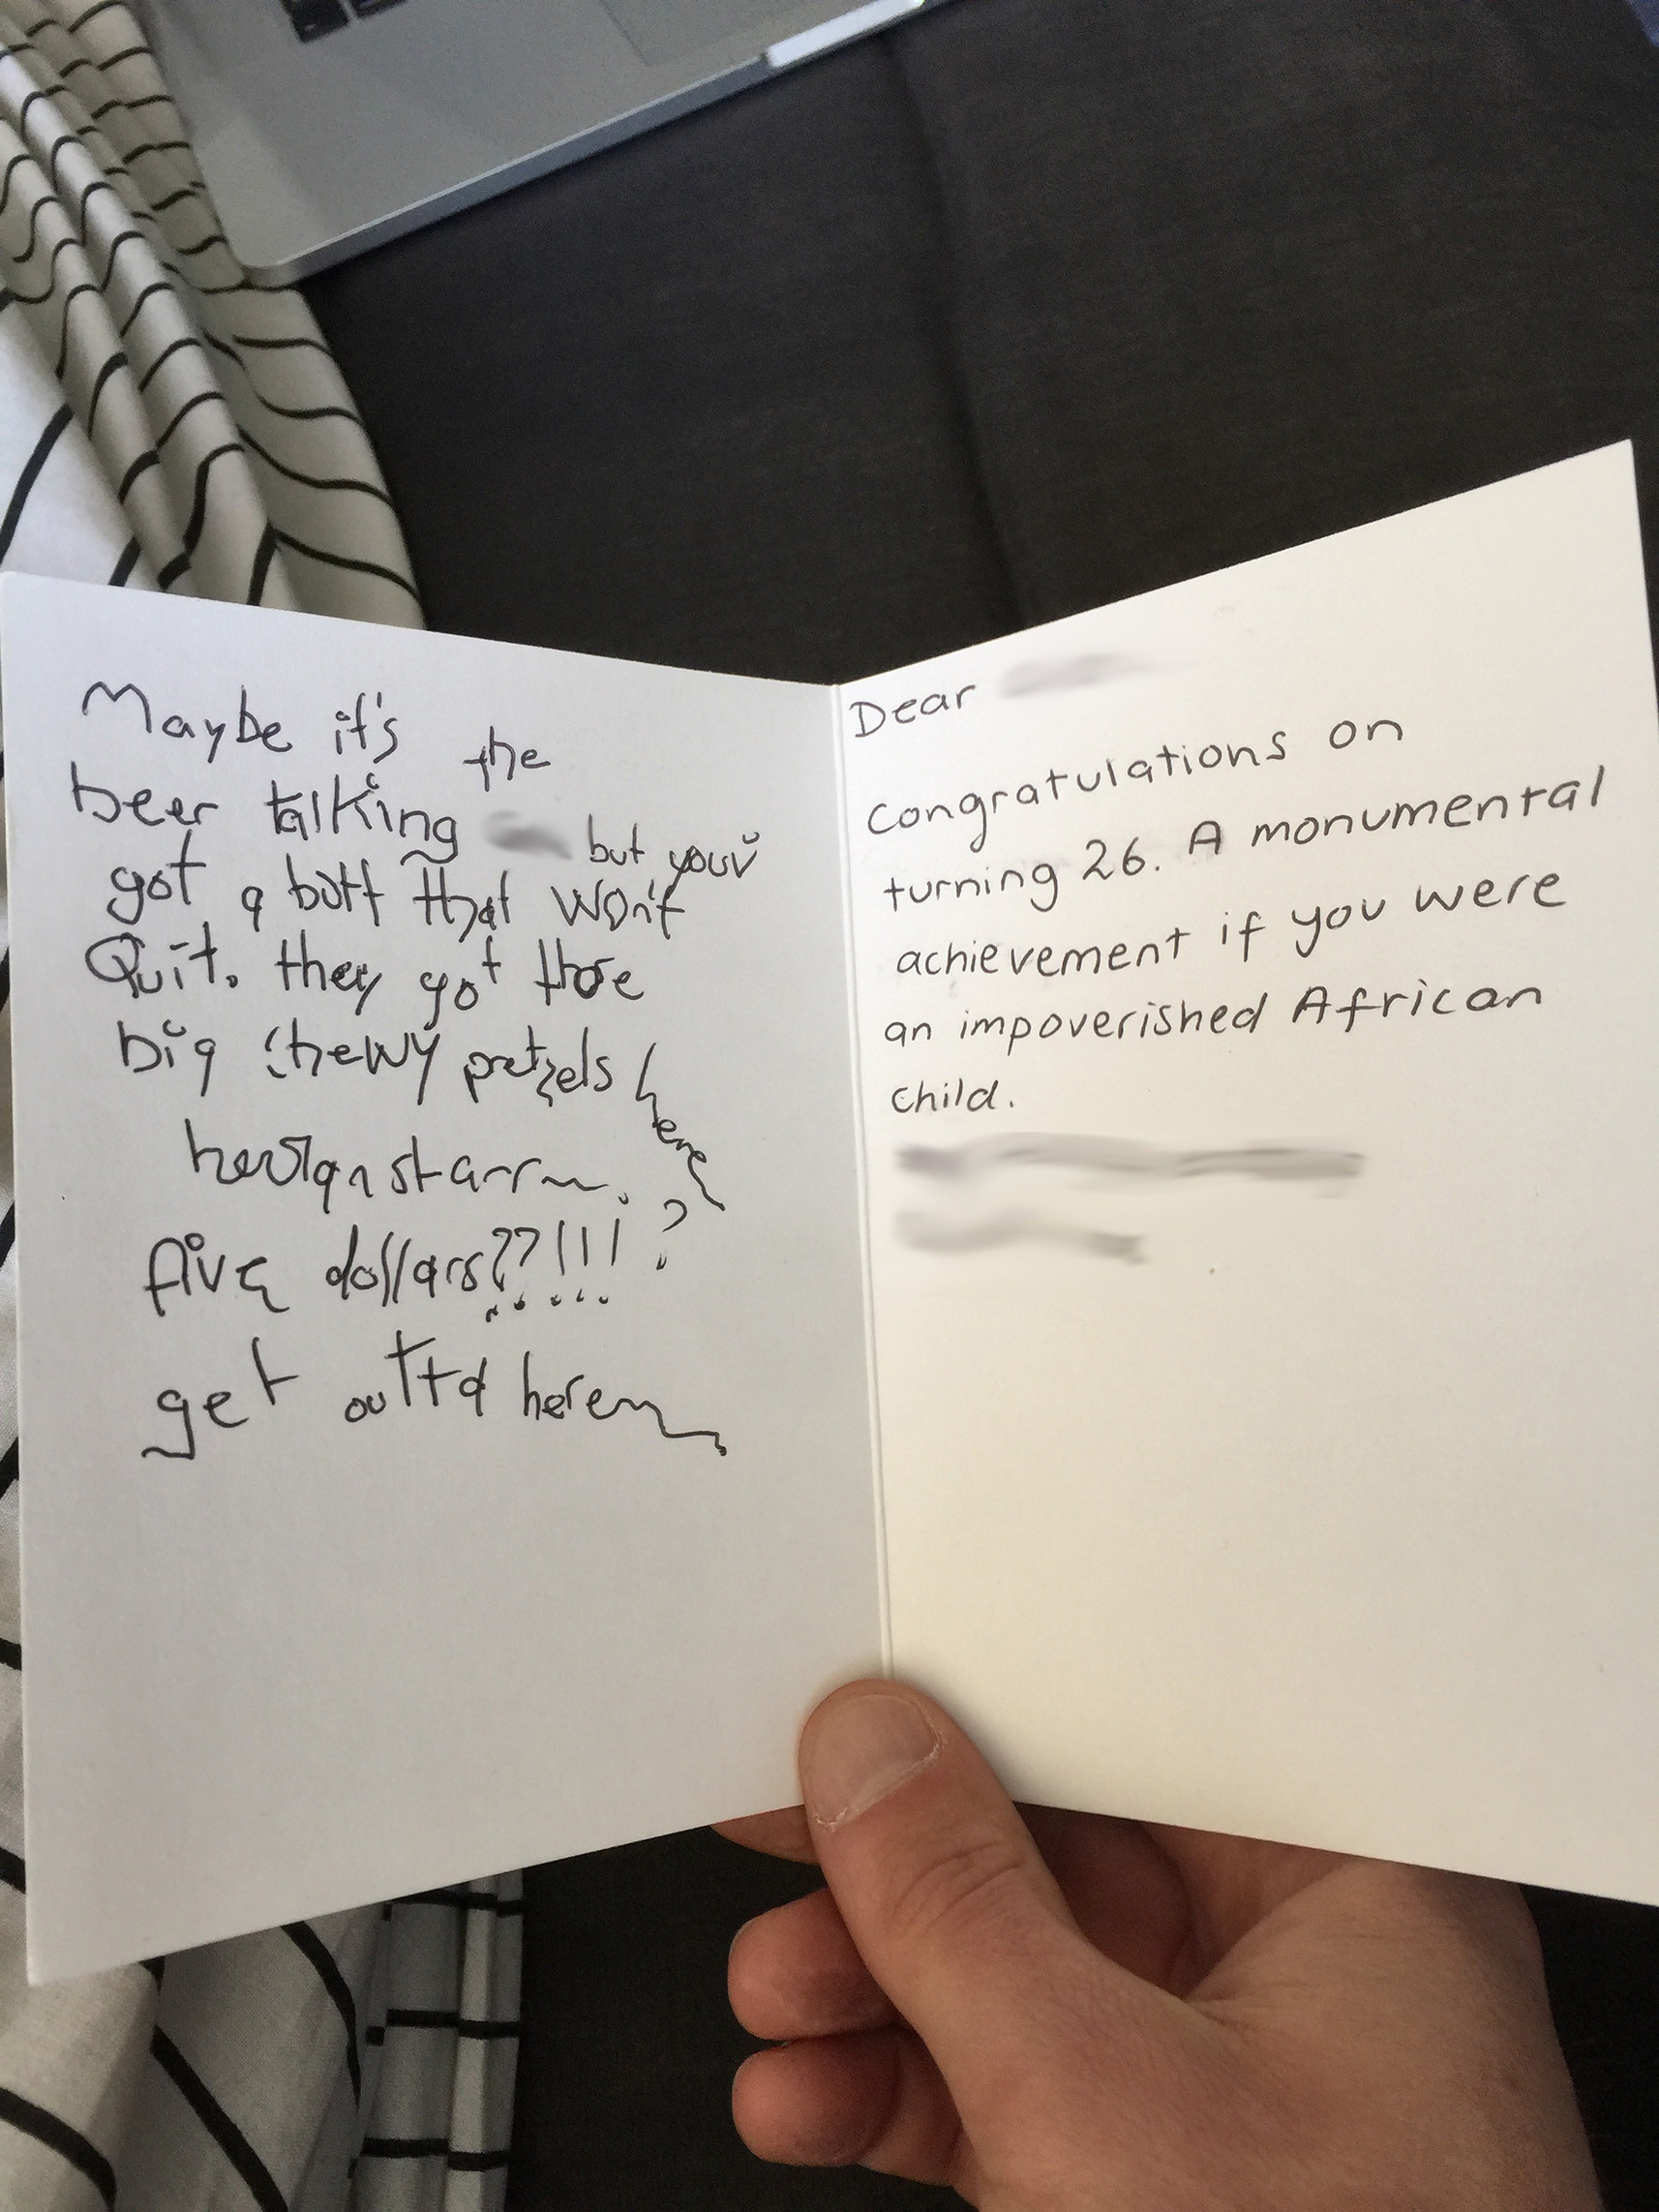 Maybe it's the
beer talking but youv
got a butt that won't
Quit. they got those
big chewy pretzels here
five dollars??!!!?
get outta here
Dear
Congratulations on
turning 26. A monumental
achievement if you were
an impoverished African
child.